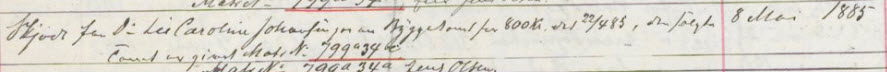 Matr N. 799a34
Skjøde fra D° Lis Caroline Johansen paa en Byggetomt for 800 Kr, dat 22/4 85, den solgte 8 Mai 1885
Tomt er givet Matr. N. 799a34c
Matr N. 799a34a Jens Olsen